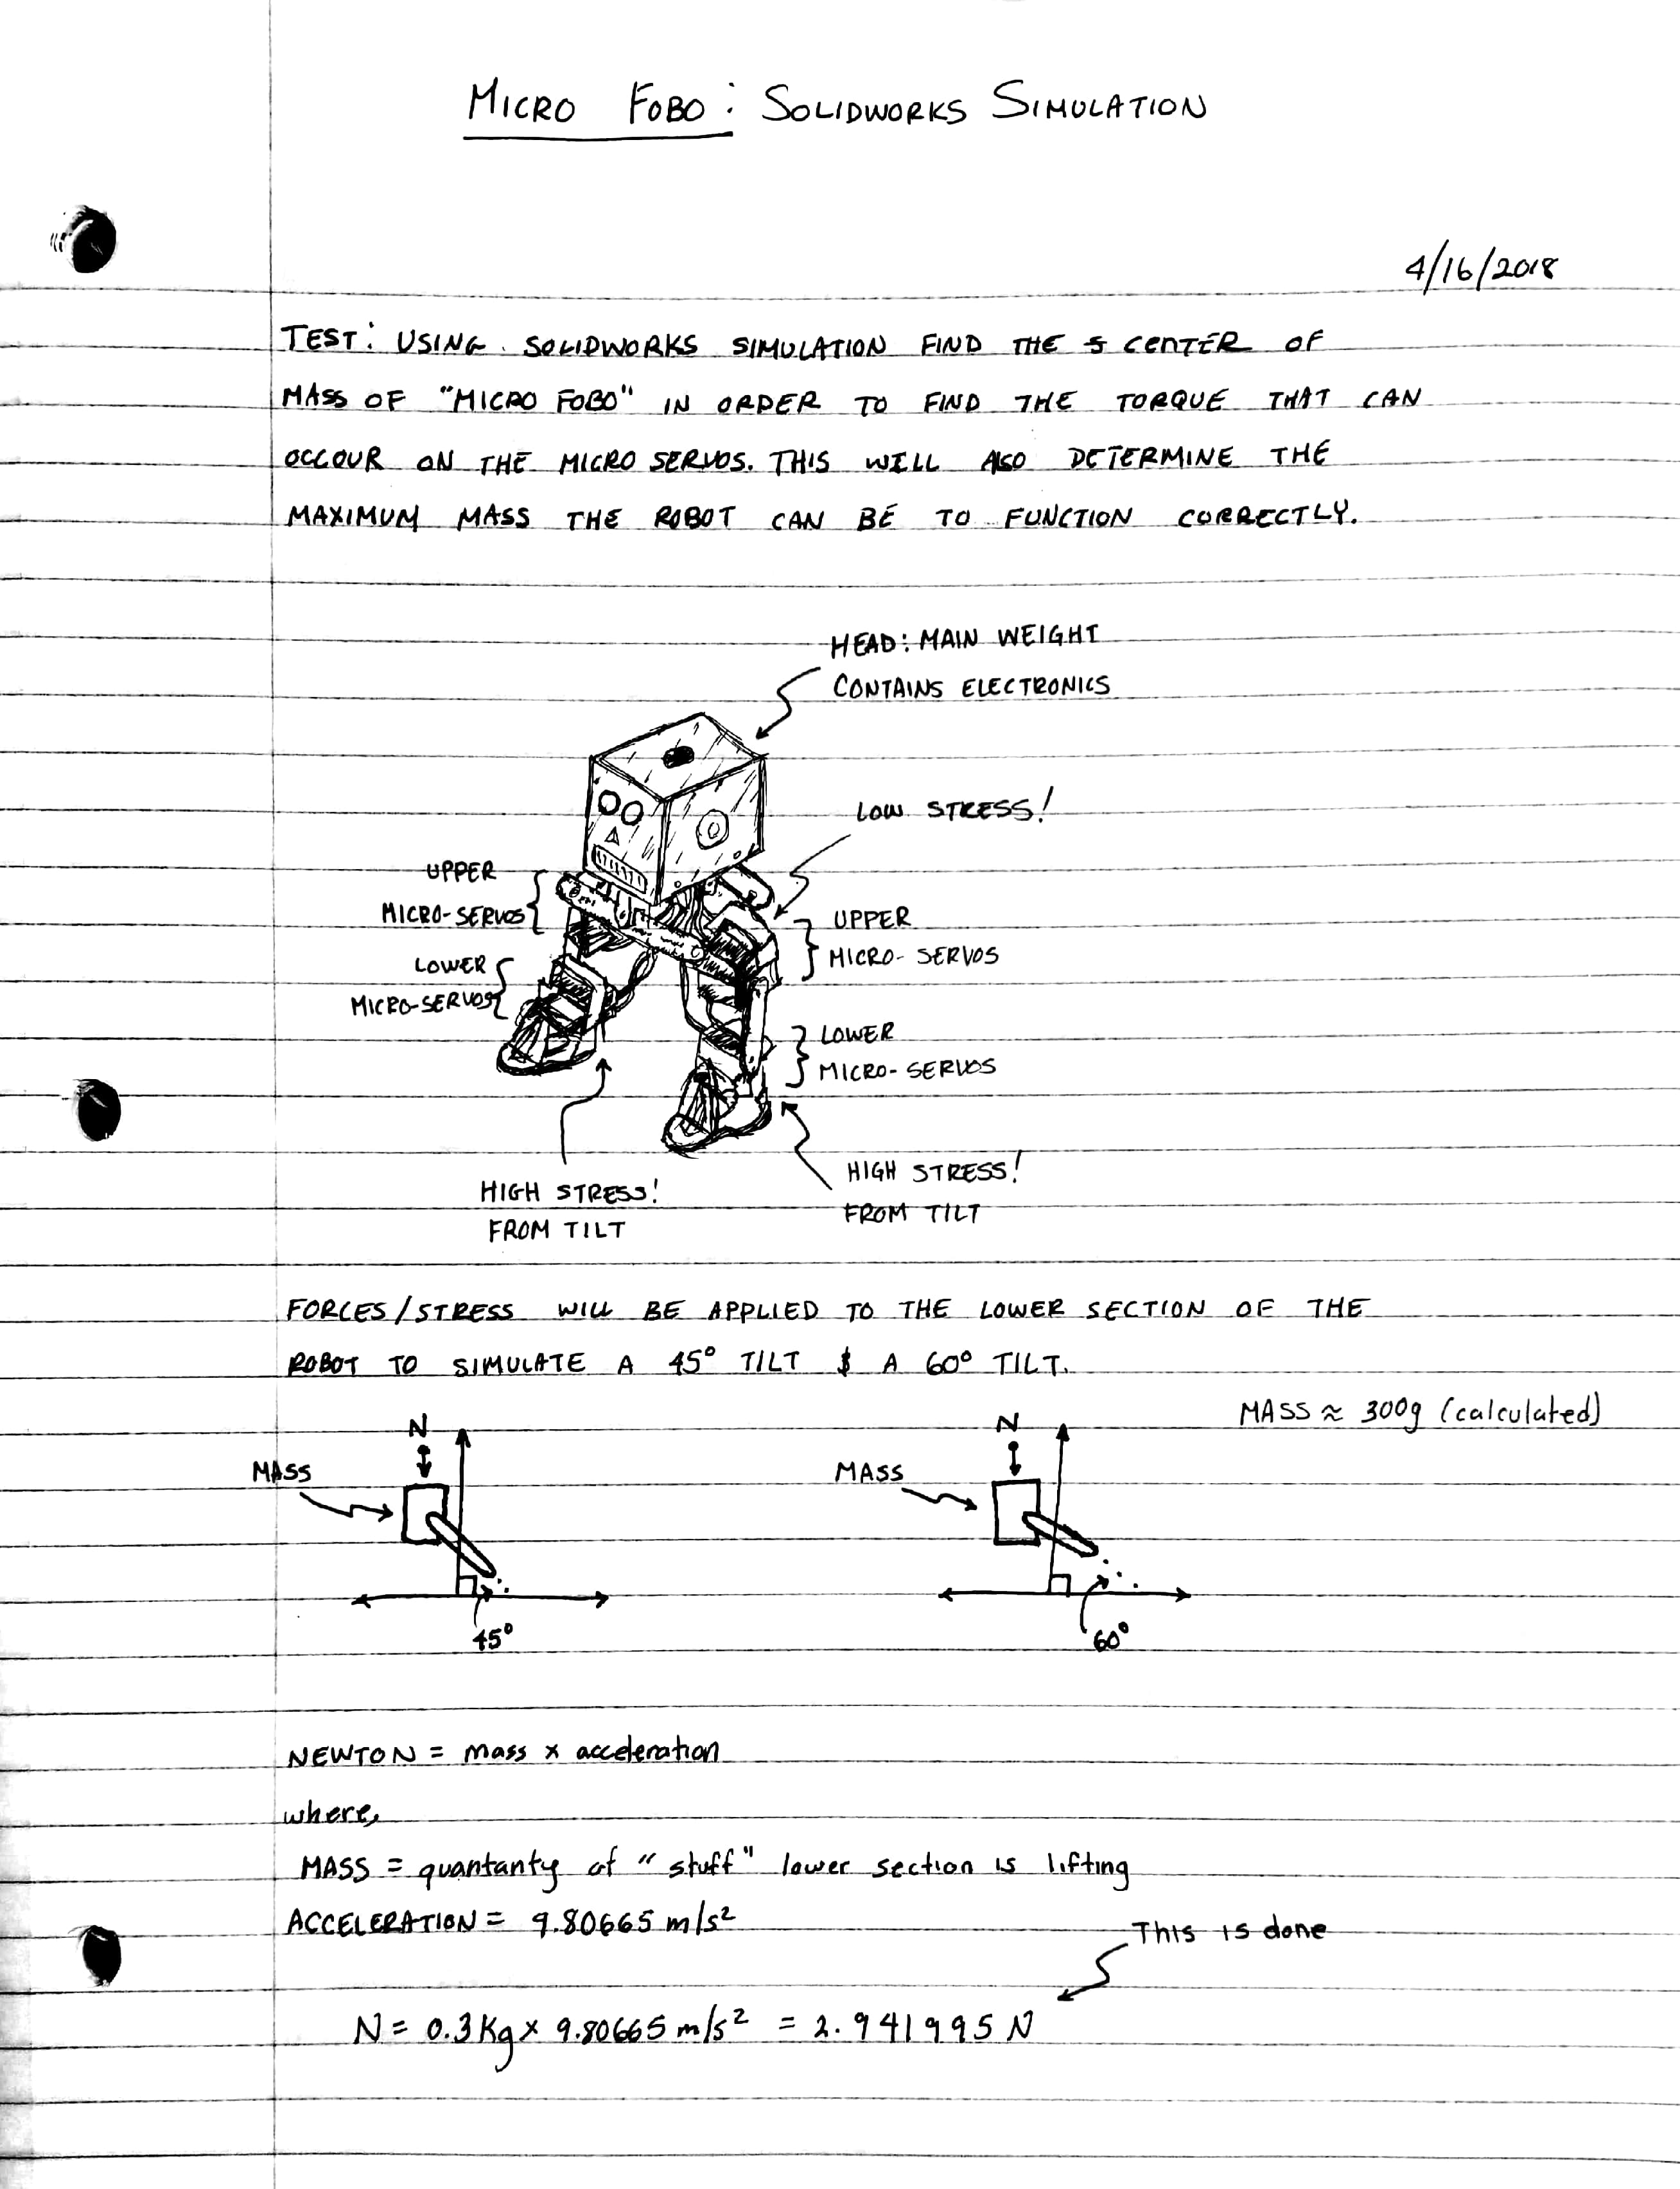 MICRO FOBO: SOLIDWORKS SIMULATION
4/16/2018
TEST: USING SOLIDWORKS SIMULATION FIND THE CENTER OF
MASS OF "MICRO FOBO" IN ORDER TO FIND THE TORQUE THAT CAN
OCCOUR ON THE MICRO SERVOS. THIS WILL ALSO DETERMINE THE
MAXIMUM MASS THE ROBOT CAN BE TO FUNCTION CORRECTLY.
HEAD: MAIN WEIGHT
CONTAINS ELECTRONICS
LOW STRESS!
UPPER
MICRO-SERVOS
UPPER
MICRO-SERVOS
LOWER
MICRO-SERVOS
LOWER
MICRO-SERVOS
HIGH STRESS!
FROM TILT
HIGH STRESS!
FROM TILT
FORCES/STRESS WILL BE APPLIED TO THE LOWER SECTION OF THE
ROBOT TO SIMULATE A 45° TILT & A 60° TILT.
MASS ≈ 300g (calculated)
N
MASS
45°
N
MASS
60°
NEWTON = mass x acceleration
where,
MASS = quantanty of "stuff" lower section is lifting
ACCELERATION = 9.80665 m/s²
This is done
N = 0.3Kg x 9.80665 m/s² = 2.941995 N